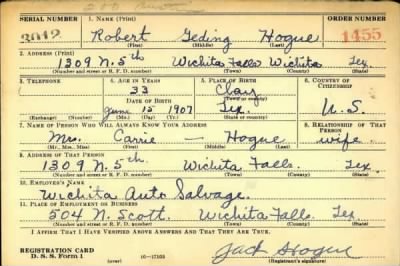 SERIAL NUMBER 1. NAME (Print) ORDER NUMBER
3012 Robert Geding Hogue 1455
(First) (Middle) (Last)
2. ADDRESS (Print)
1309 N. 5th Wichita Falls Wichita Tex.
(Number and street or R. F. D. number) (Town) (County) (State)
3. TELEPHONE 4. AGE IN YEARS 5. PLACE OF BIRTH 6. COUNTRY OF CITIZENSHIP
33 Clay
DATE OF BIRTH (Town or county)
June 15 1907 Tex. U.S.
(Exchange) (Number) (Mo.) (Day) (Yr.) (State or country)
7. NAME OF PERSON WHO WILL ALWAYS KNOW YOUR ADDRESS 8. RELATIONSHIP OF THAT PERSON
Mrs. Carrie — Hogue wife
(Mr., Mrs., Miss) (First) (Middle) (Last)
9. ADDRESS OF THAT PERSON
1309 N. 5th Wichita Falls. Tex.
(Number and street or R. F. D. number) (Town) (County) (State)
10. EMPLOYER'S NAME
Wichita Auto Salvage.
11. PLACE OF EMPLOYMENT OR BUSINESS
504 N. Scott. Wichita Falls. Tex
(Number and street or R. F. D. number) (Town) (County) (State)
I AFFIRM THAT I HAVE VERIFIED ABOVE ANSWERS AND THAT THEY ARE TRUE.
REGISTRATION CARD Jack Hogue
D. S. S. Form 1 (over) 16—17105 (Registrant's signature)